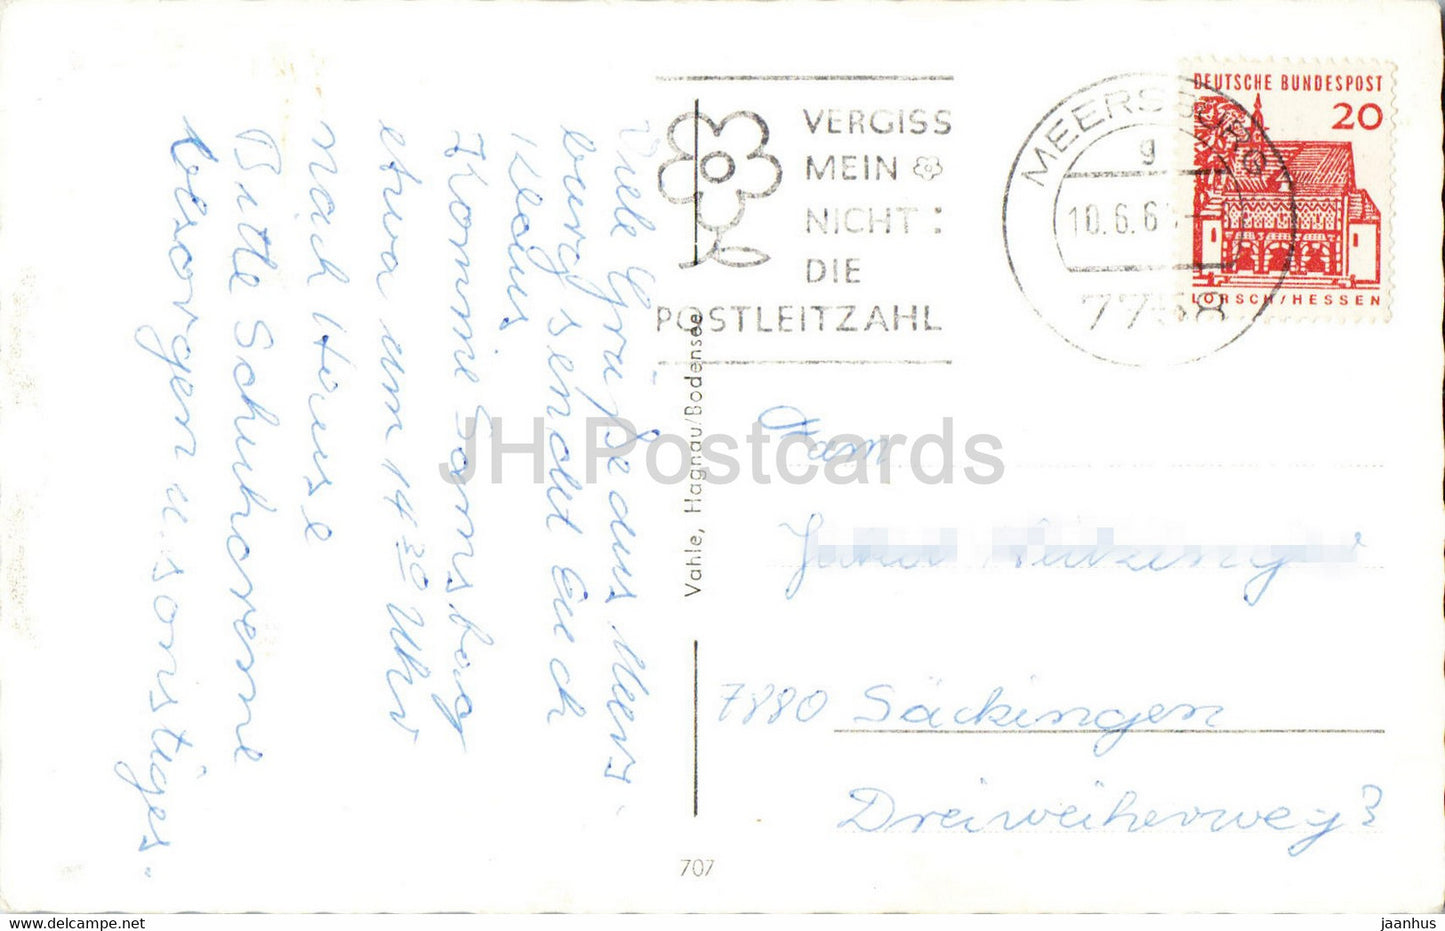 Viele Grüße aus Meers-
burg sendet Euch
Klaus
Komme Samstag
etwa um 14 30 Uhr
nach Hause
Bitte Schuhcreme
besorgen u. sonstiges.
VERGISS
MEIN
NICHT:
DIE
POSTLEITZAHL
MEERSBURG
g
10.6.6
7758
DEUTSCHE BUNDESPOST
20
LORSCH/HESSEN
Vahle, Hagnau/Bodensee
Fam
7880 Säckingen
Dreiweiherweg 3
707
JH Postcards
www.delcampe.net
jaanhus